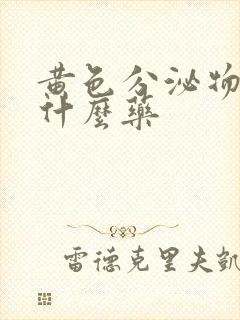 黄色分泌物
什麼藥
雷德克里夫凱